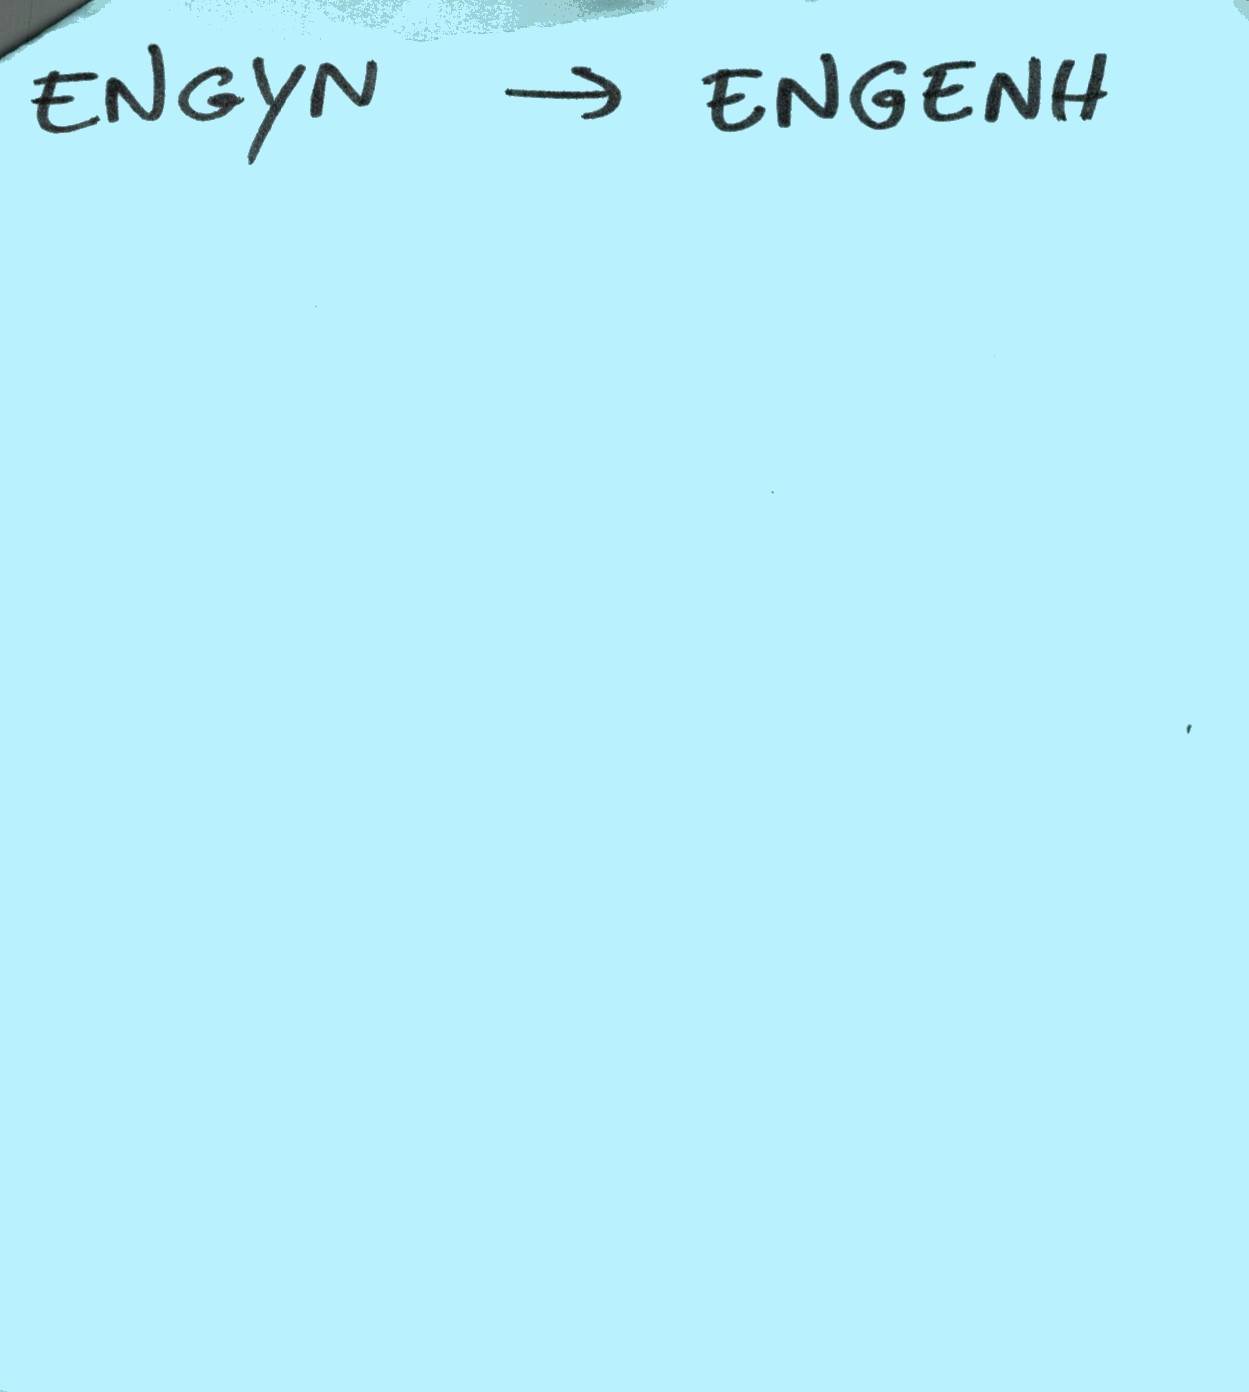 ENGYN → ENGENH